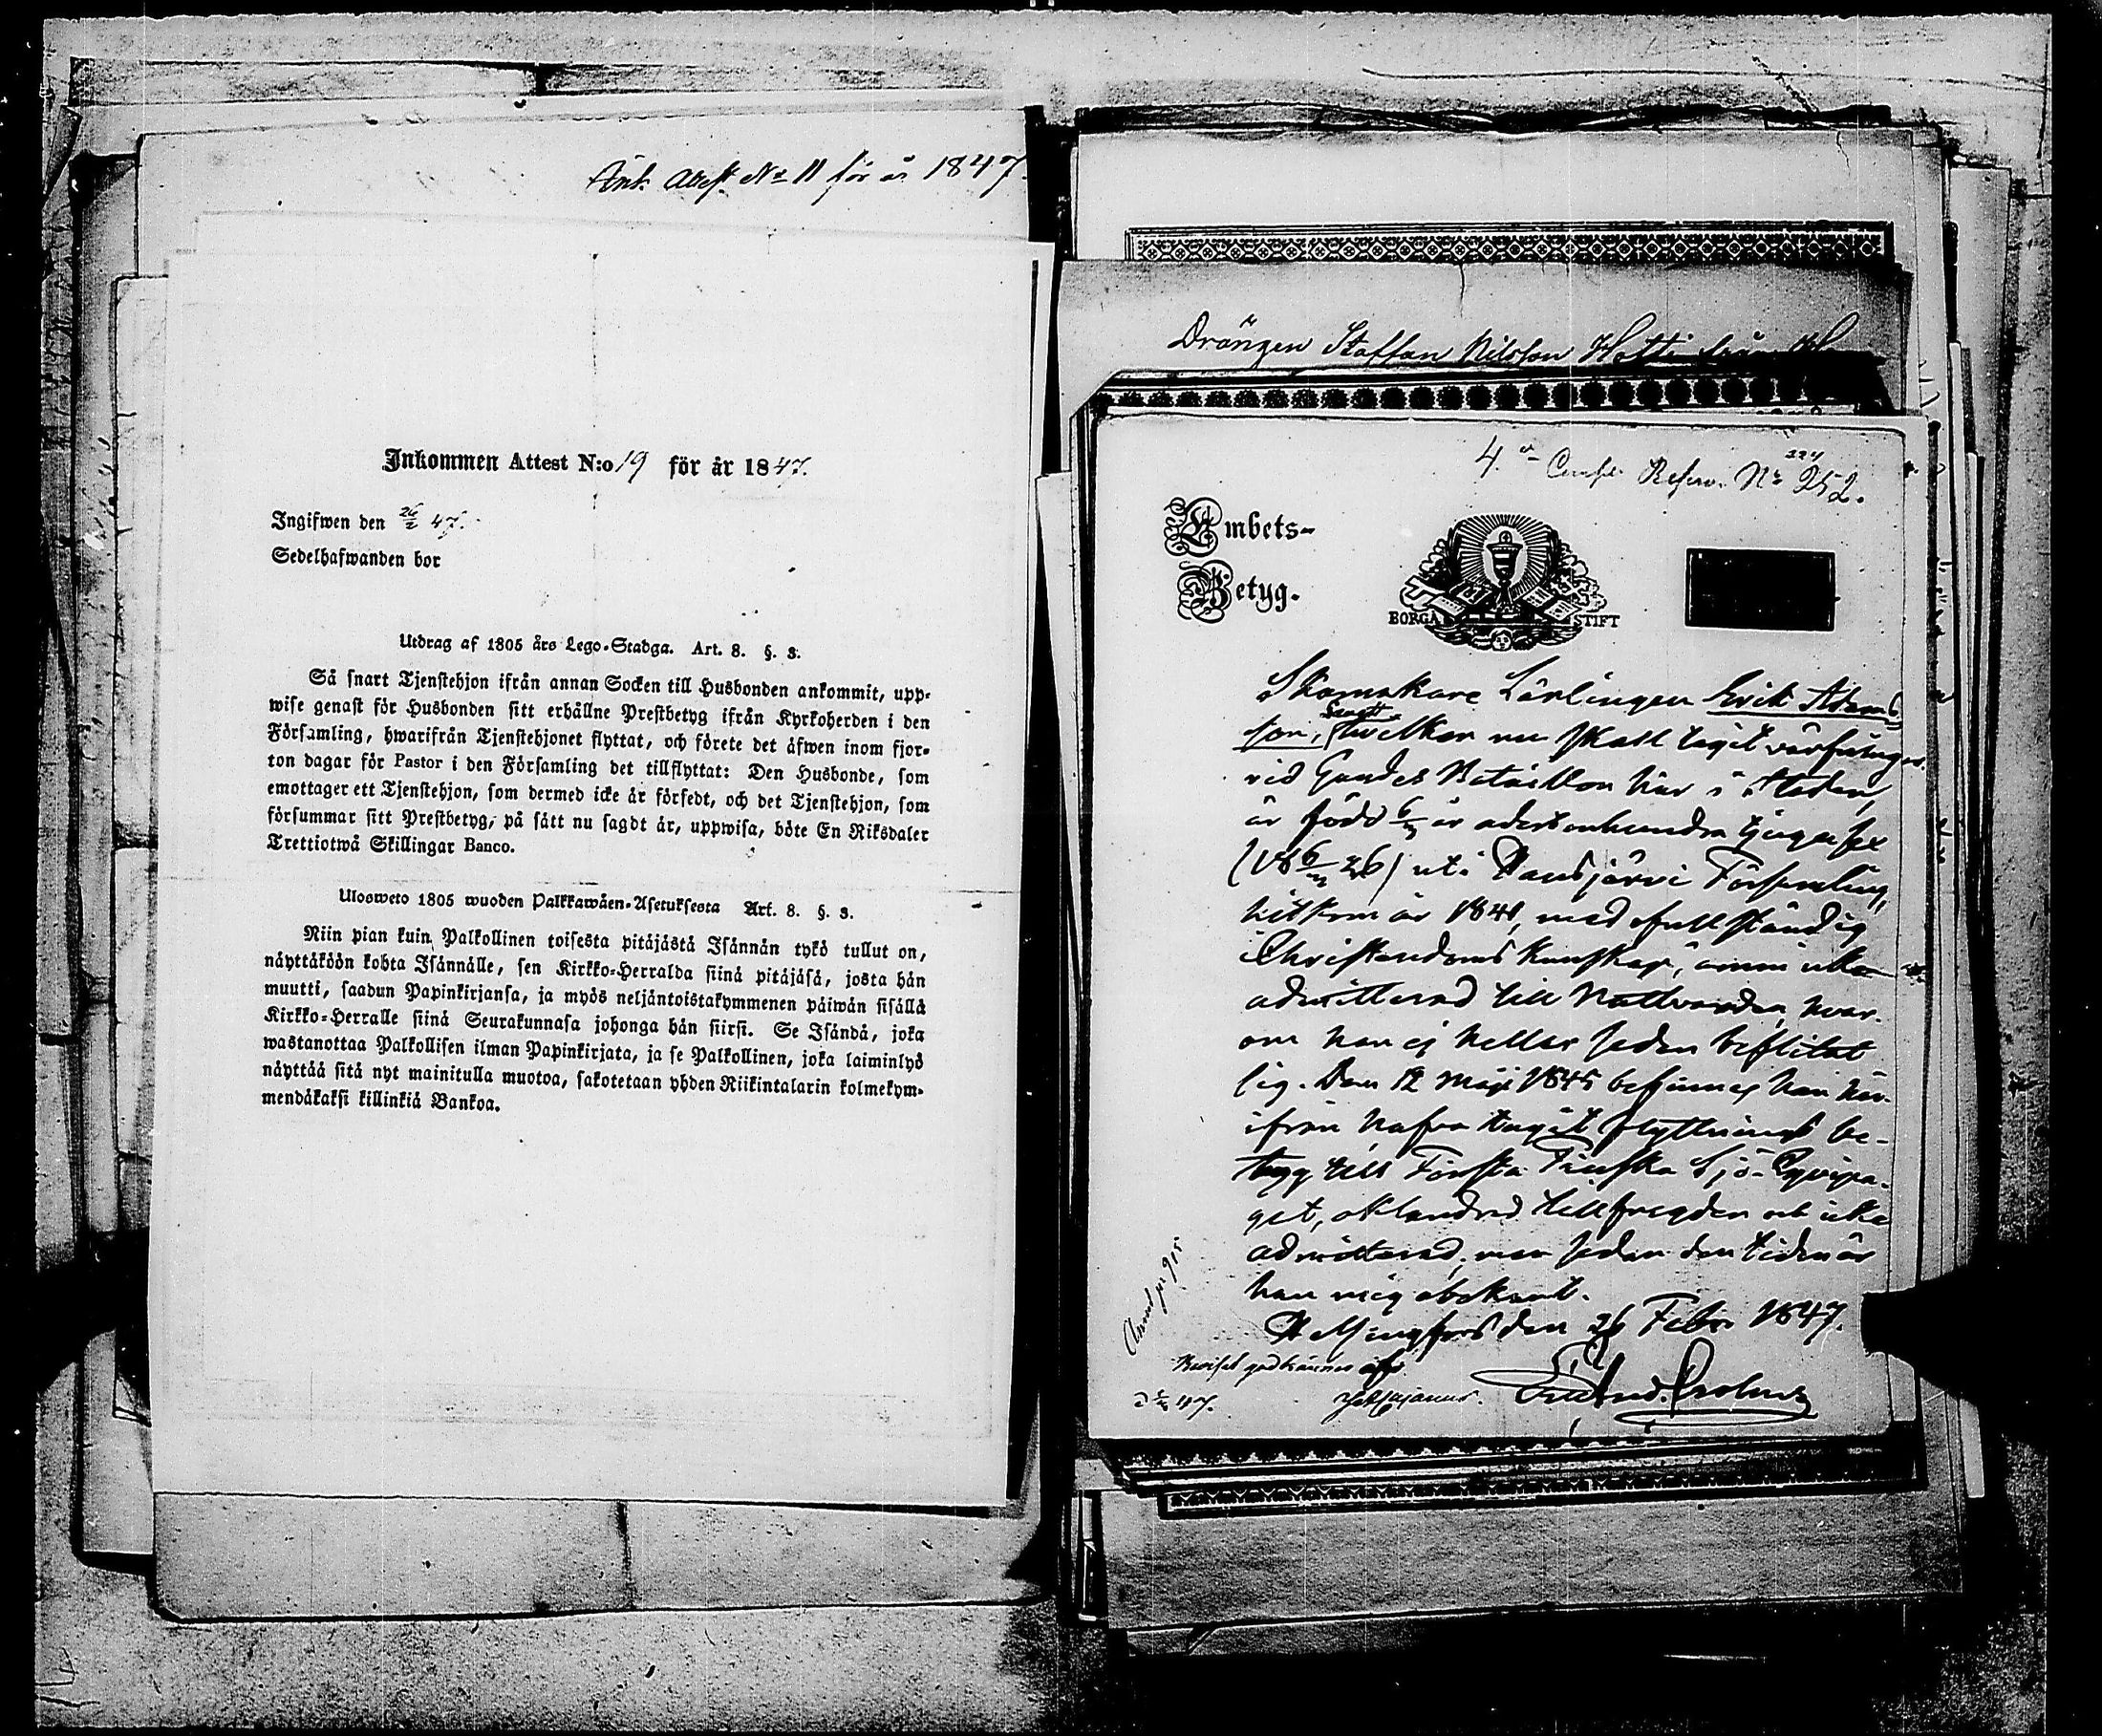 Ank. Attest No 11 för år 1847.
Inkommen Attest N:o 19 för år 1847.
Ingifwen den 26/2 47.
Sedelhafwanden bor
Utdrag af 1805 års Lego-Stadga. Art. 8. §. 3.
Så snart Tjenstehjon ifrån annan Socken till Husbonden ankommit, upp-
wise genast för Husbonden sitt erhållne Prestbetyg ifrån Kyrkoherden i den
Församling, hwarifrån Tjenstehjonet flyttat, och förete det äfwen inom fjor-
ton dagar för Pastor i den Församling det tillflyttat: Den Husbonde, som
emottager ett Tjenstehjon, som dermed icke är försedt, och det Tjenstehjon, som
försummar sitt Prestbetyg, på sätt nu sagdt är, uppwisa, böte En Riksdaler
Trettiotwå Skillingar Banco.
Ulosweto 1805 wuoden Palkkawäen-Asetuksesta Art. 8. §. 3.
Niin pian kuin Palkollinen toisesta pitäjästä Isännän tykö tullut on,
näyttäköön kohta Isännälle, sen Kirkko-Herralda siinä pitäjäsä, josta hän
muutti, saadun Papinkirjansa, ja myös neljäntoistakymmenen päiwän sisällä
Kirkko-Herralle siinä Seurakunnasa johonga hän siirsi. Se Isändä, joka
wastanottaa Palkollisen ilman Papinkirjata, ja se Palkollinen, joka laiminlyö
näyttää sitä nyt mainitulla muotoa, sakotetaan yhden Riikintalarin kolmekym-
mendäkaksi killinkiä Bankoa.
Drängen Staffan Nilsson Hotti från
4. Reserv. No 252.
Embets-
Betyg.
BORGÅ STIFT
Skomakare Lärlingen Erik Adams
son, hvilken nu skall tagit värfning
vid Gardes Bataillon här i Staden,
är född 6/ år adertonhundra tjugusex
(18 6/ 26) uti Hausjärvi Församling,
hitkom år 1841, med ofullständig
Christendoms kunskap, ännu icke
admitterad till Nattvarden, hvar-
om han ej heller sedan beflitat
sig. Den 12 Maji 1845 befinnes han här-
ifrån hafva tagit flyttnings be-
tyg till Första Finska Sjö-Equipa-
get, oklandrad till frägden och icke
admitterad; men sedan den tiden är
han mig obekant.
Helsingfors den 26 Febr. 1847.
Beviset godkännes af
47.